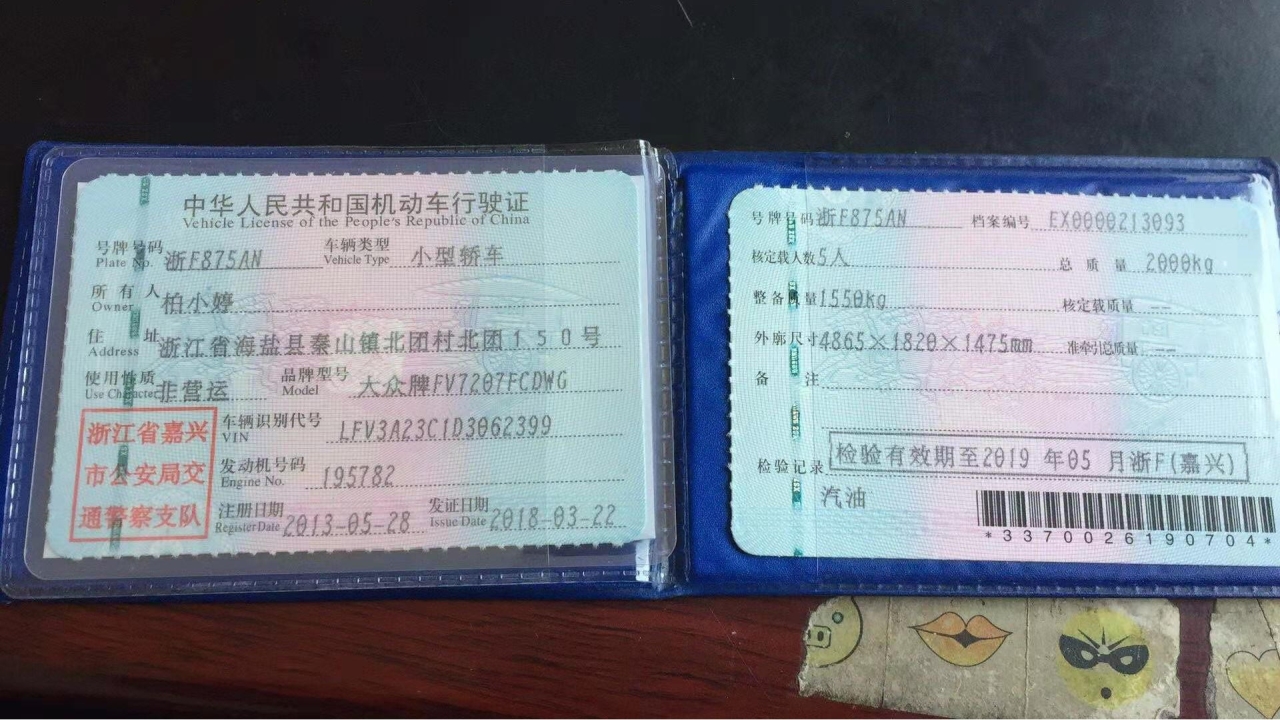 中华人民共和国机动车行驶证
Vehicle License of the People's Republic of China
号牌号码 浙F875AN 车辆类型 小型轿车
Plate No. Vehicle Type
所有人 柏小婷
Owner
住址 浙江省海盐县秦山镇北团村北团150号
Address
使用性质 非营运 品牌型号 大众牌FV7207FCDWG
Use Character Model
浙江省嘉兴
市公安局交
通警察支队
车辆识别代号 LFV3A23C1D3062399
VIN
发动机号码 195782
Engine No.
注册日期 2013-05-28 发证日期 2018-03-22
Register Date Issue Date
号牌号码 浙F875AN 档案编号 EX0000213093
核定载人数 5人 总质量 2000kg
整备质量 1550kg 核定载质量
外廓尺寸 4865×1820×1475mm 准牵引总质量 --
备注
检验记录 检验有效期至2019年05月浙F(嘉兴)
汽油
*3370026190704*